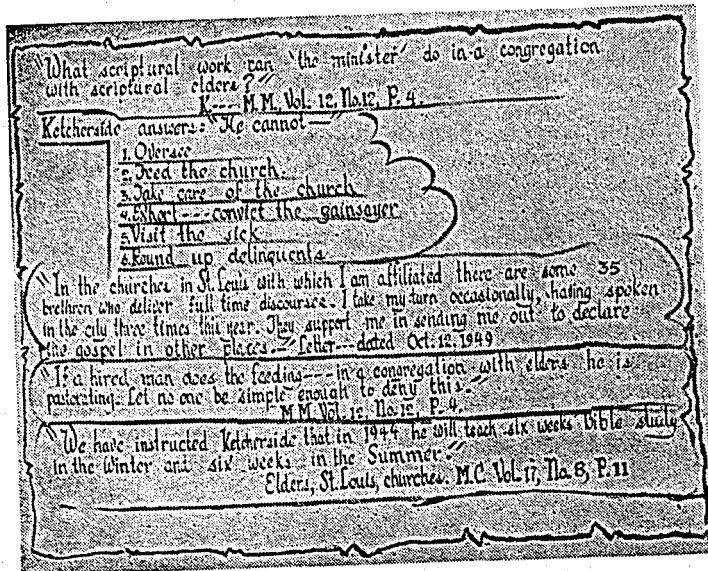 "What scriptural work can 'the minister' do in a congregation
with scriptural elders?"
K---- M.M. Vol. 12, No. 12, P. 4.
Ketcherside answers: "He cannot—"
1. Oversee
2. Feed the church.
3. Take care of the church
4. Exhort---convict the gainsayer
5. Visit the sick
6. Round up delinquents
"In the churches in St. Louis with which I am affiliated there are some 35
brethren who deliver full time discourses. I take my turn occasionally, having spoken
in the city three times this year. They support me in sending me out to declare
the gospel in other places." Letter---dated Oct. 12, 1949
"If a hired man does the feeding----in a congregation with elders he is
pastorating. Let no one be simple enough to deny this."
M.M. Vol. 12, No. 12, P. 4.
"We have instructed Ketcherside that in 1944 he will teach six weeks Bible study
in the Winter and six weeks in the Summer."
Elders, St. Louis, churches. M.C. Vol. 17, No. 8, P. 11